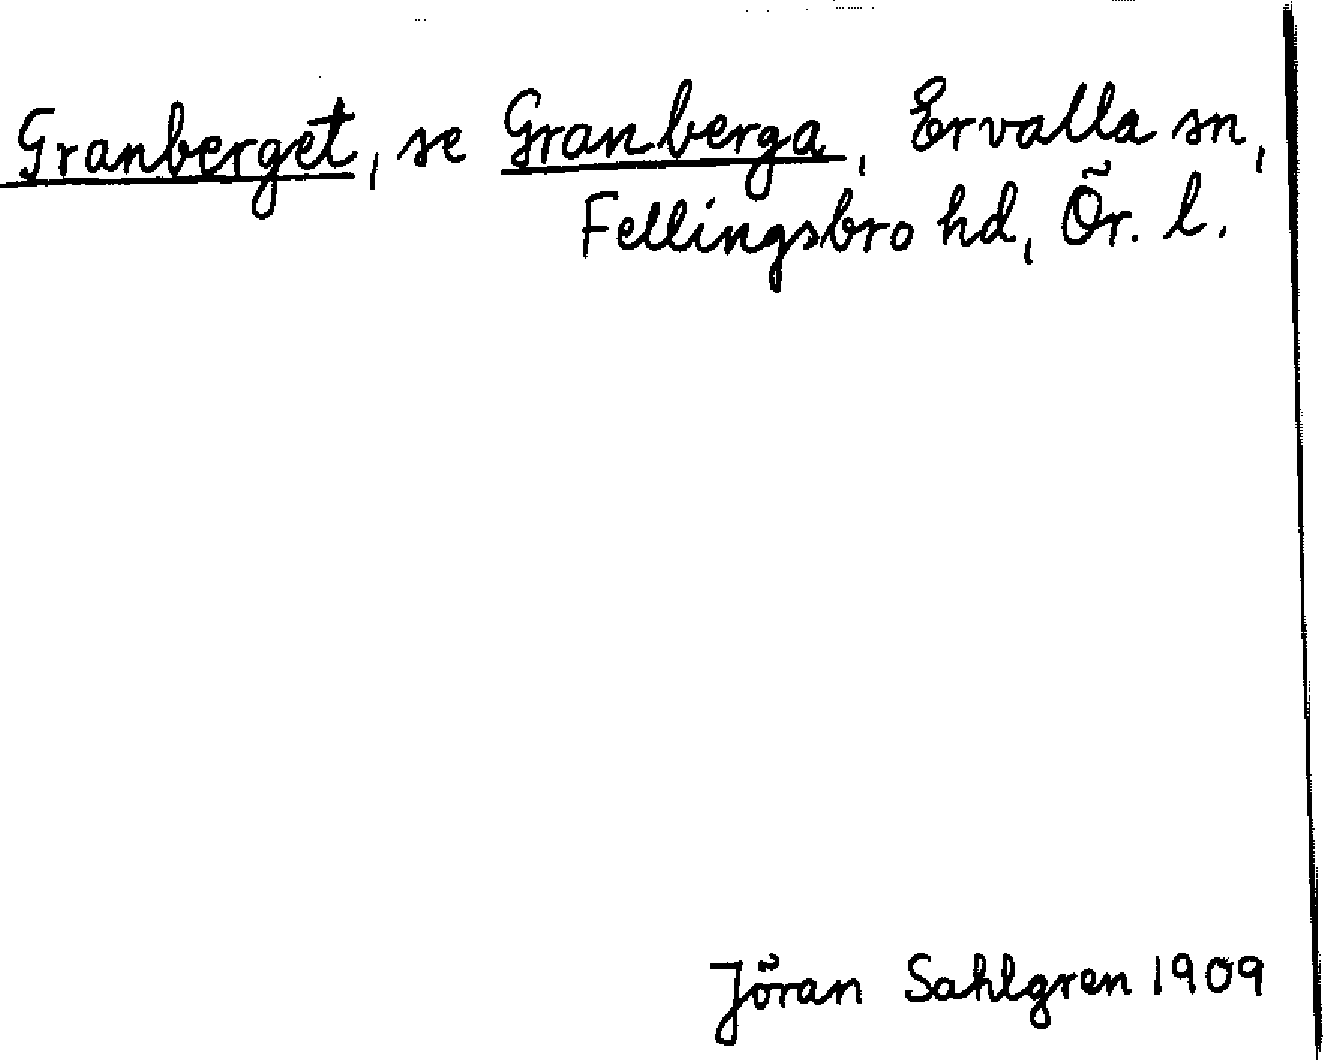 Granberget, se Granberga, Ervalla sn,
Fellingsbro hd, Ör. l.
Jöran Sahlgren 1909